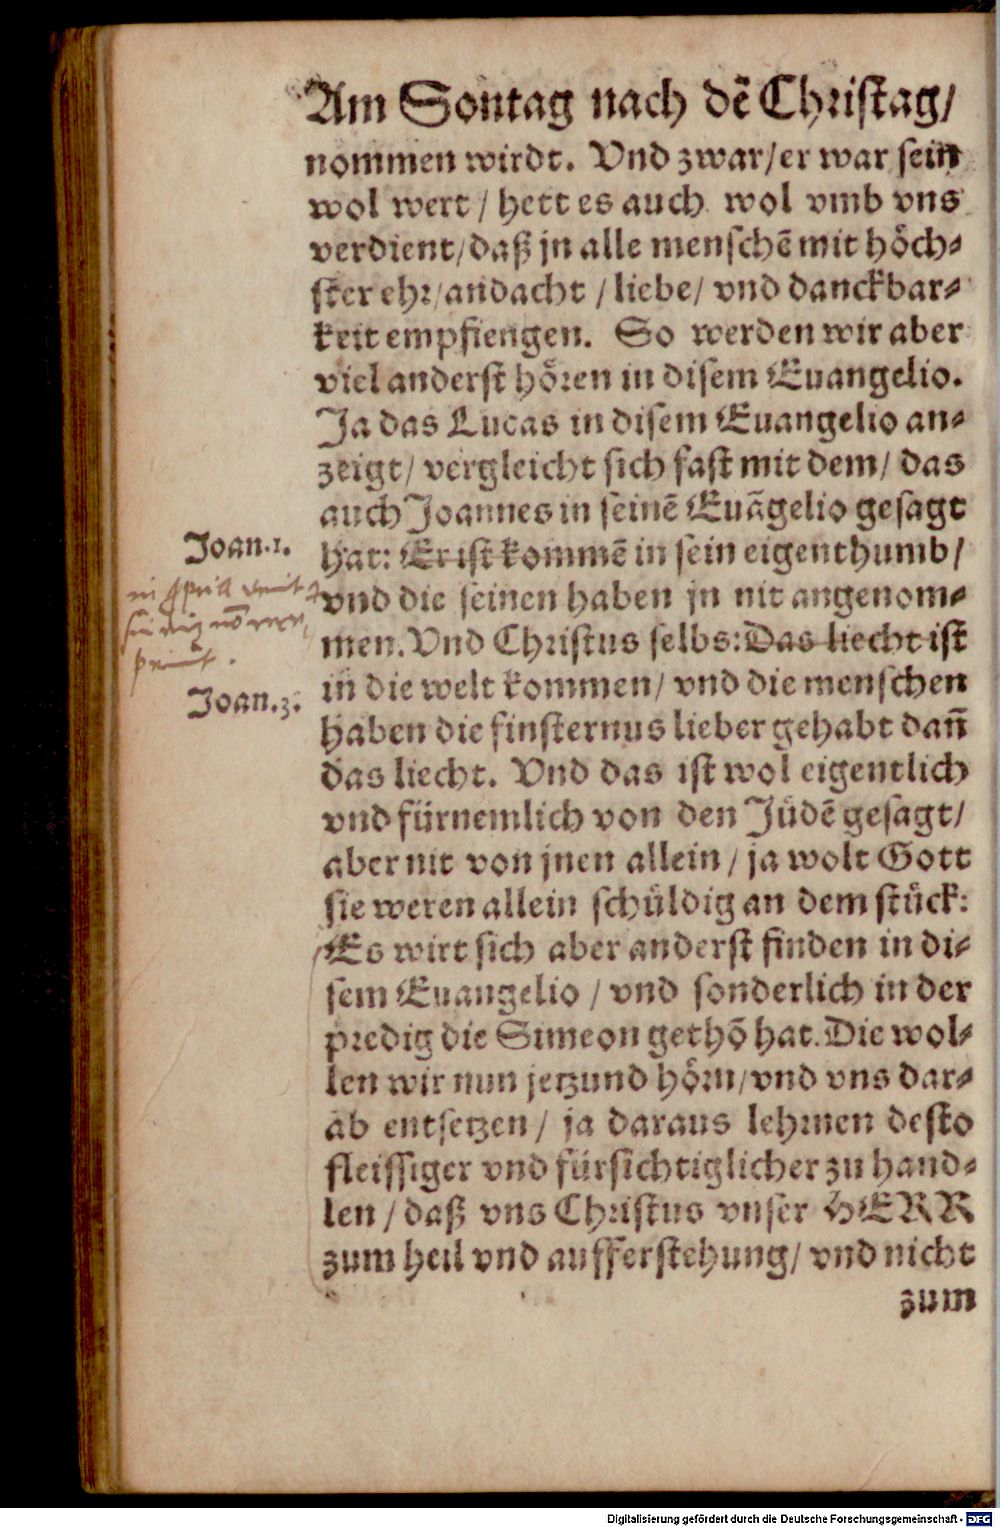 Am Sontag nach dẽ Christag/
nommen wirdt. Vnd zwar/er war sein
wol wert / hett es auch wol vmb vns
verdient/daß jn alle menschẽ mit hoͤch⸗
ster ehr/andacht /liebe/ vnd danckbar⸗
keit empfiengen. So werden wir aber
viel anderst hoͤren in disem Euangelio.
Ja das Lucas in disem Euangelio an⸗
zeigt/ vergleicht sich fast mit dem/ das
auch Joannes in seinẽ Euãgelio gesagt
Joan.1.
hat: Er ist kommẽ in sein eigenthumb/
vnd die seinen haben jn nit angenom⸗
men. Vnd Christus selbs: Das liecht ist
Joan.3.
in die welt kommen/ vnd die menschen
haben die finsternus lieber gehabt dañ
das liecht. Vnd das ist wol eigentlich
vnd fürnemlich von den Jüdẽ gesagt/
aber nit von jnen allein / ja wolt Gott
sie weren allein schüldig an dem stück:
Es wirt sich aber anderst finden in di⸗
sem Euangelio / vnd sonderlich in der
predig die Simeon gethõ hat. Die wol⸗
len wir nun jetzund hoͤrn/vnd vns dar⸗
ab entsetzen/ ja daraus lehrnen desto
fleissiger vnd fürsichtiglicher zu hand⸗
len / daß vns Christus vnser HERR
zum heil vnd aufferstehung/ vnd nicht
zum
Digitalisierung gefördert durch die Deutsche Forschungsgemeinschaft - DFG